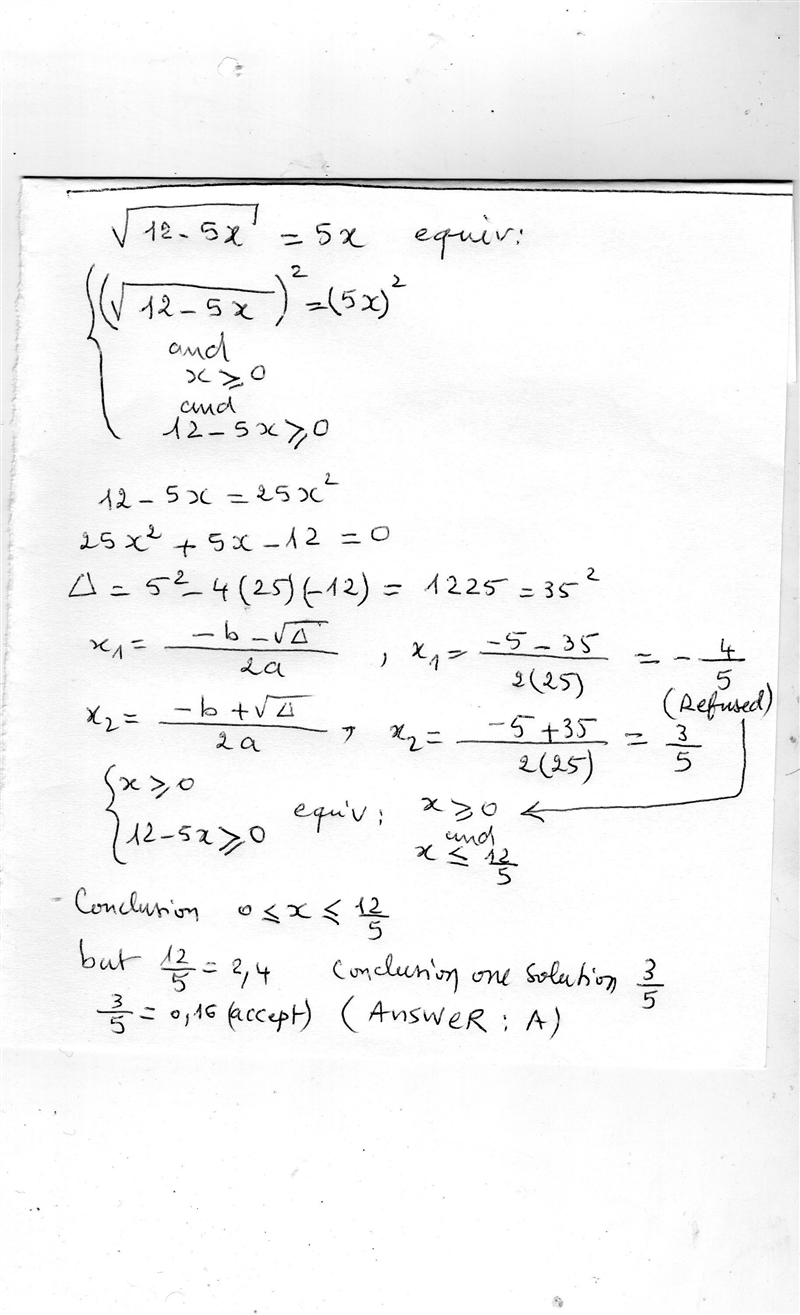 √(12-5x) = 5x equiv:
(√(12-5x))² = (5x)²
and
x ⩾ 0
and
12-5x ⩾ 0
12-5x = 25x²
25x² + 5x - 12 = 0
Δ = 5² - 4(25)(-12) = 1225 = 35²
x₁ = (-b-√Δ)/2a , x₁ = (-5-35)/2(25) = -4/5
(Refused)
x₂ = (-b+√Δ)/2a , x₂ = (-5+35)/2(25) = 3/5
{x ⩾ 0
{12-5x ⩾ 0 equiv: x ⩾ 0
and
x ≤ 12/5
- Conclusion 0 ⩽ x ⩽ 12/5
but 12/5 = 2,4 Conclusion one solution 3/5
3/5 = 0,16 (accept) (ANSWER : A)